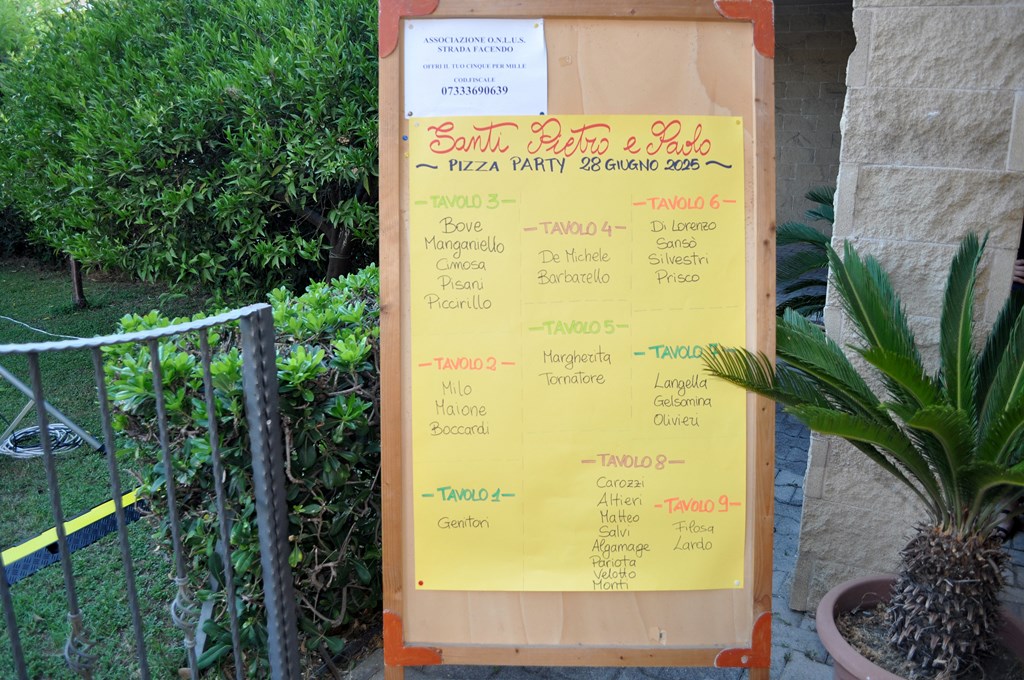 ASSOCIAZIONE O.N.L.U.S.
STRADA FACENDO
OFFRI IL TUO CINQUE PER MILLE
COD.FISCALE
07333690639
Santi Pietro e Paolo
~ PIZZA PARTY 28 GIUGNO 2025 ~
- TAVOLO 3 -
Bove
Manganiello
Cimosa
Pisani
Piccirillo
- TAVOLO 2 -
Milo
Maione
Boccardi
- TAVOLO 1 -
Genitori
- TAVOLO 4 -
De Michele
Barbarello
- TAVOLO 5 -
Margherita
Tornatore
- TAVOLO 6 -
Di Lorenzo
Sansò
Silvestri
Prisco
- TAVOLO 7
Langella
Gelsomina
Olivieri
- TAVOLO 8 -
Carozzi
Altieri
Matteo
Salvi
Algamage
Pariota
Velotto
Monti
- TAVOLO 9 -
Filosa
Lardo